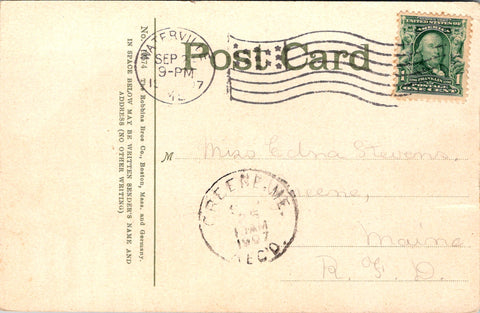 Post Card
WATERVIL
SEP
9-PM
ME.
UNITED STATES OF AMERICA
FRANKLIN
POSTAGE
ONE CENT
The Robbins Bros Co., Boston, Mass. and Germany.
IN SPACE BELOW MAY BE WRITTEN SENDER'S NAME AND
ADDRESS (NO OTHER WRITING)
M Miss Edna Stevens,
Greene,
Maine
R. F. D.
GREENE, ME.
AM
1907
REC'D.